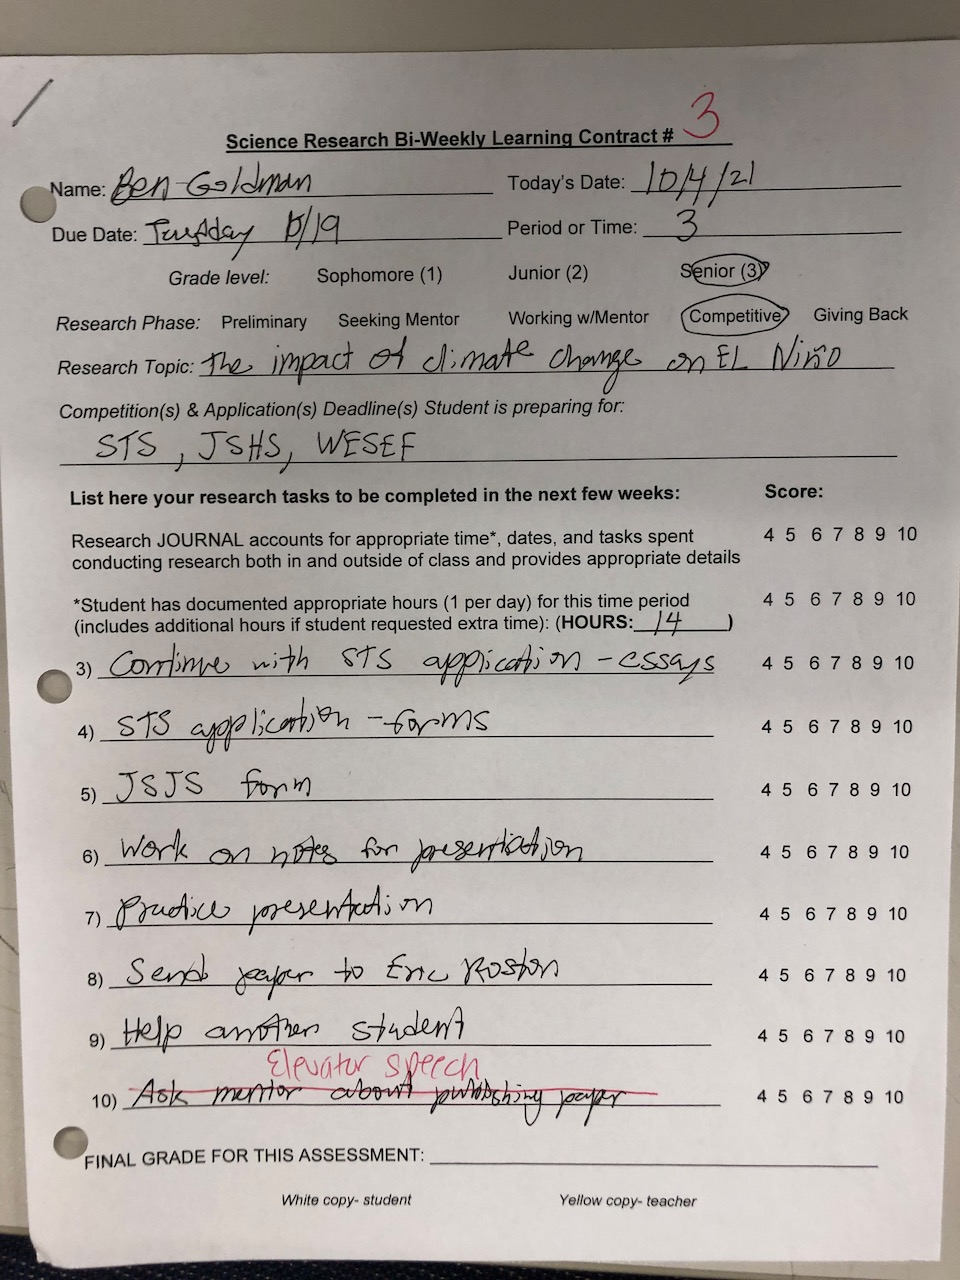 Science Research Bi-Weekly Learning Contract # 3
Name: Ben Goldman Today's Date: 10/4/21
Due Date: Tuesday 10/19 Period or Time: 3
Grade level: Sophomore (1) Junior (2) Senior (3)
Research Phase: Preliminary Seeking Mentor Working w/Mentor Competitive Giving Back
Research Topic: The impact of climate change on EL Niño
Competition(s) & Application(s) Deadline(s) Student is preparing for:
STS, JSHS, WESEF
List here your research tasks to be completed in the next few weeks: Score:
Research JOURNAL accounts for appropriate time*, dates, and tasks spent 4 5 6 7 8 9 10
conducting research both in and outside of class and provides appropriate details
*Student has documented appropriate hours (1 per day) for this time period 4 5 6 7 8 9 10
(includes additional hours if student requested extra time): (HOURS: 14 )
3) Continue with STS application - essays 4 5 6 7 8 9 10
4) STS application - forms 4 5 6 7 8 9 10
5) JSJS form 4 5 6 7 8 9 10
6) Work on notes for presentation 4 5 6 7 8 9 10
7) Practice presentation 4 5 6 7 8 9 10
8) Send paper to Eric Roston 4 5 6 7 8 9 10
9) Help another student 4 5 6 7 8 9 10
Elevator speech
10) Ask mentor about publishing paper 4 5 6 7 8 9 10
FINAL GRADE FOR THIS ASSESSMENT:
White copy- student Yellow copy- teacher